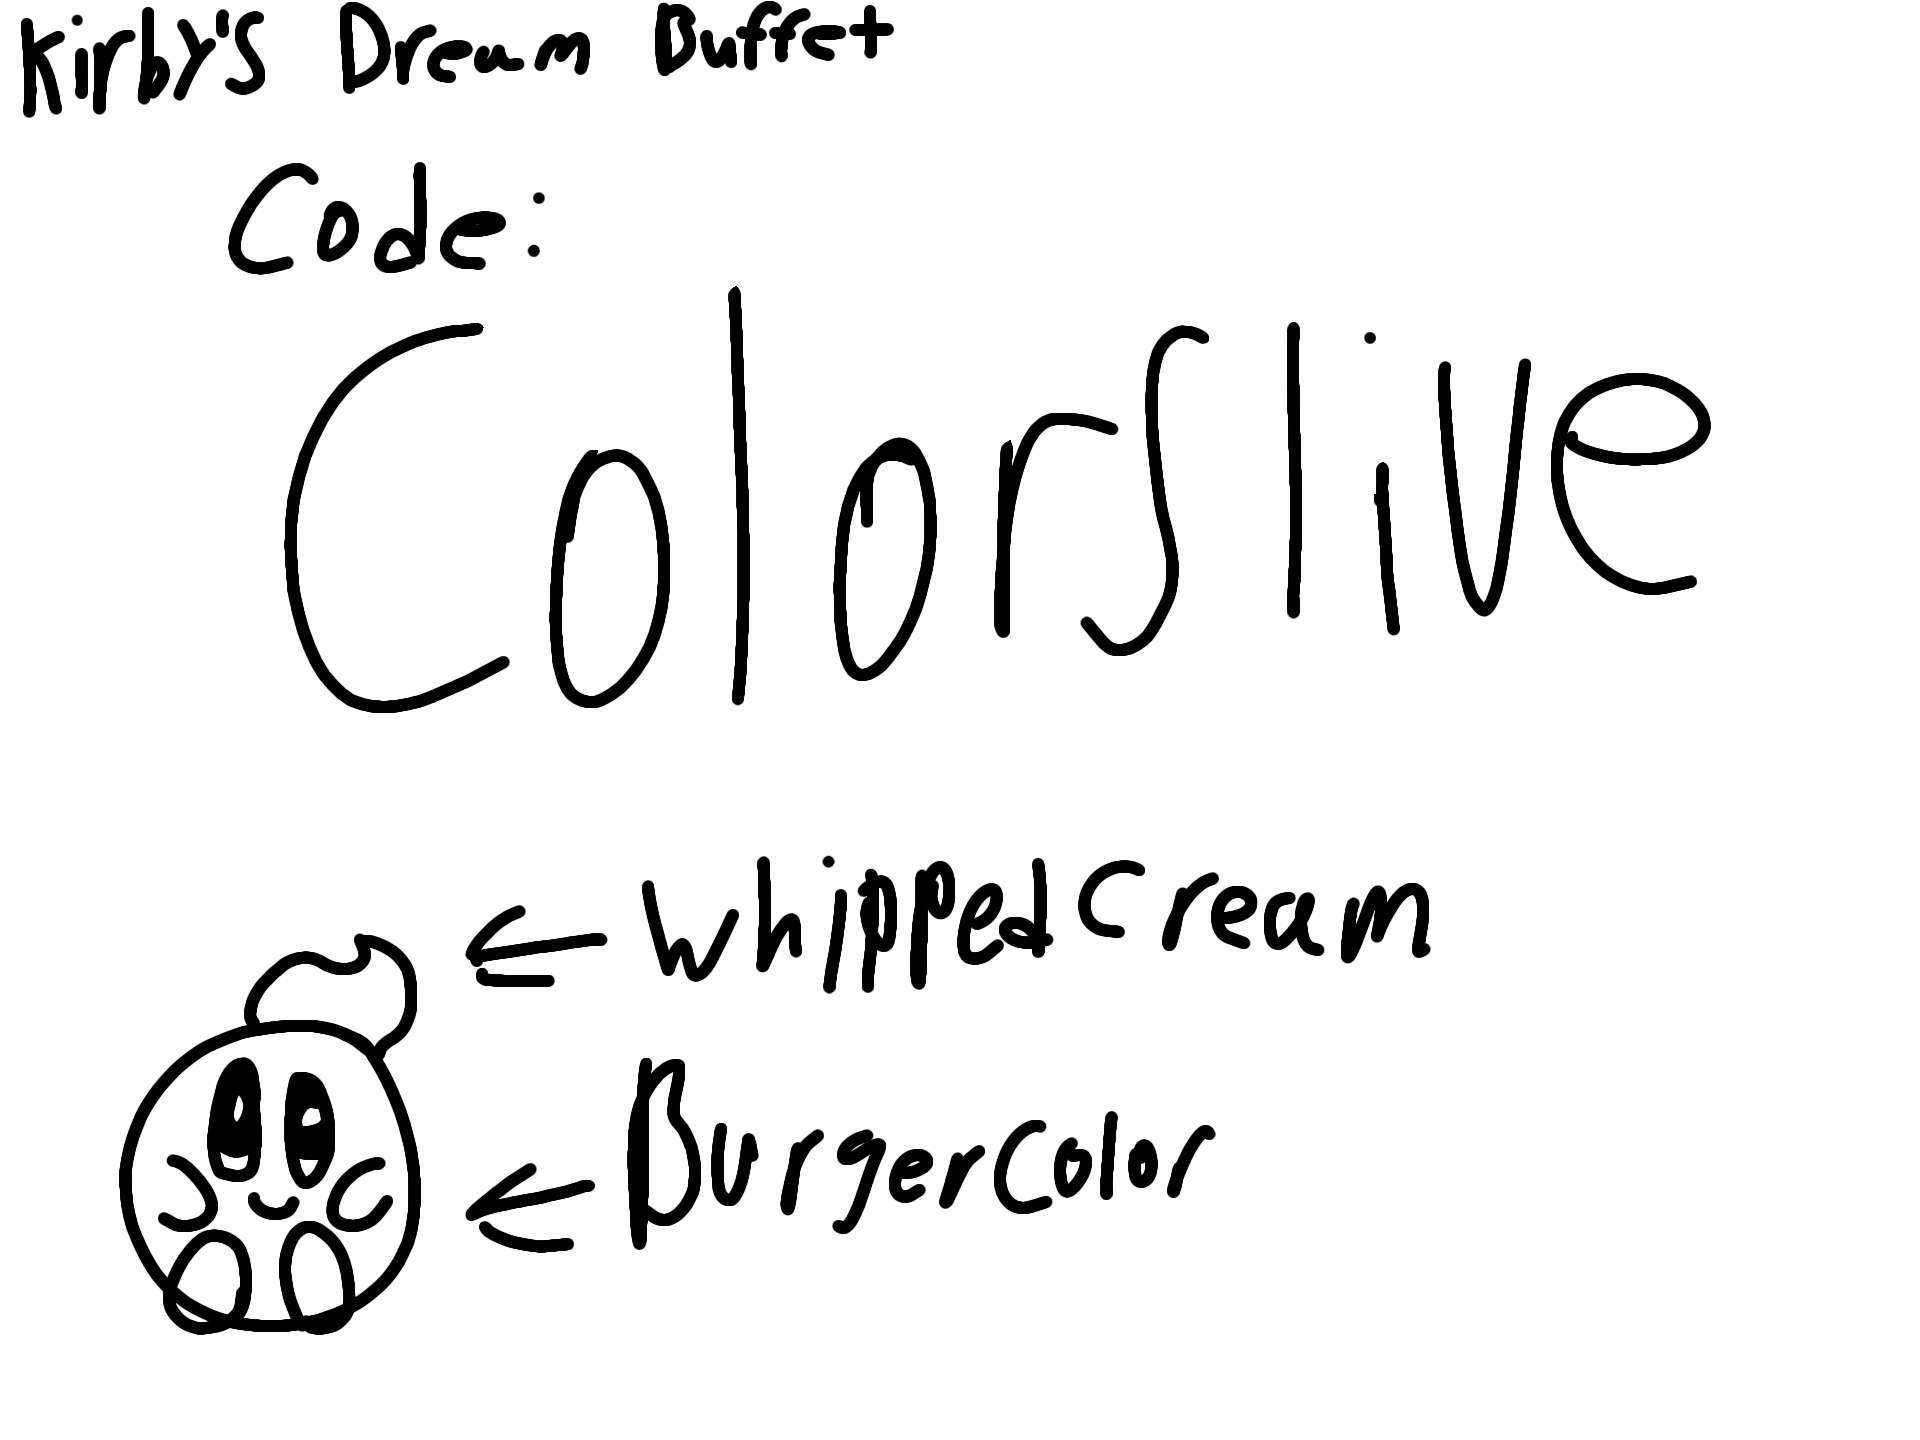 Kirby's Dream Buffet
Code:
Colorslive
whipped cream
Burger Color